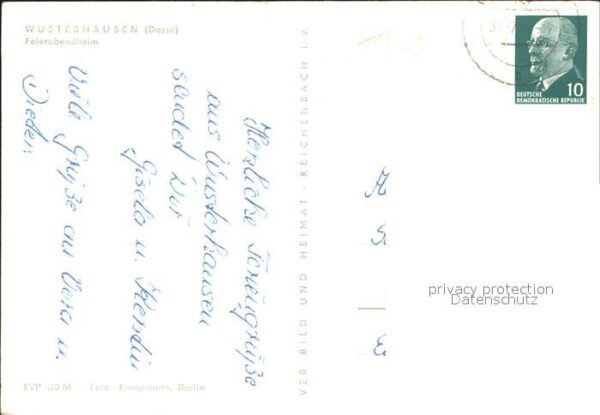 WUSTERHAUSEN (Dosse)
Feierabendheim
Herzliche Feriengrüße
aus Wusterhausen
sendet Dir
Gisela u. Kerstin
Viele Grüße an Vera u.
Dieter.
EVP -,20 M Foto: Kampmann, Berlin
VEB BILD UND HEIMAT · REICHENBACH I. V.
10
DEUTSCHE
DEMOKRATISCHE REPUBLIK
privacy protection
Datenschutz